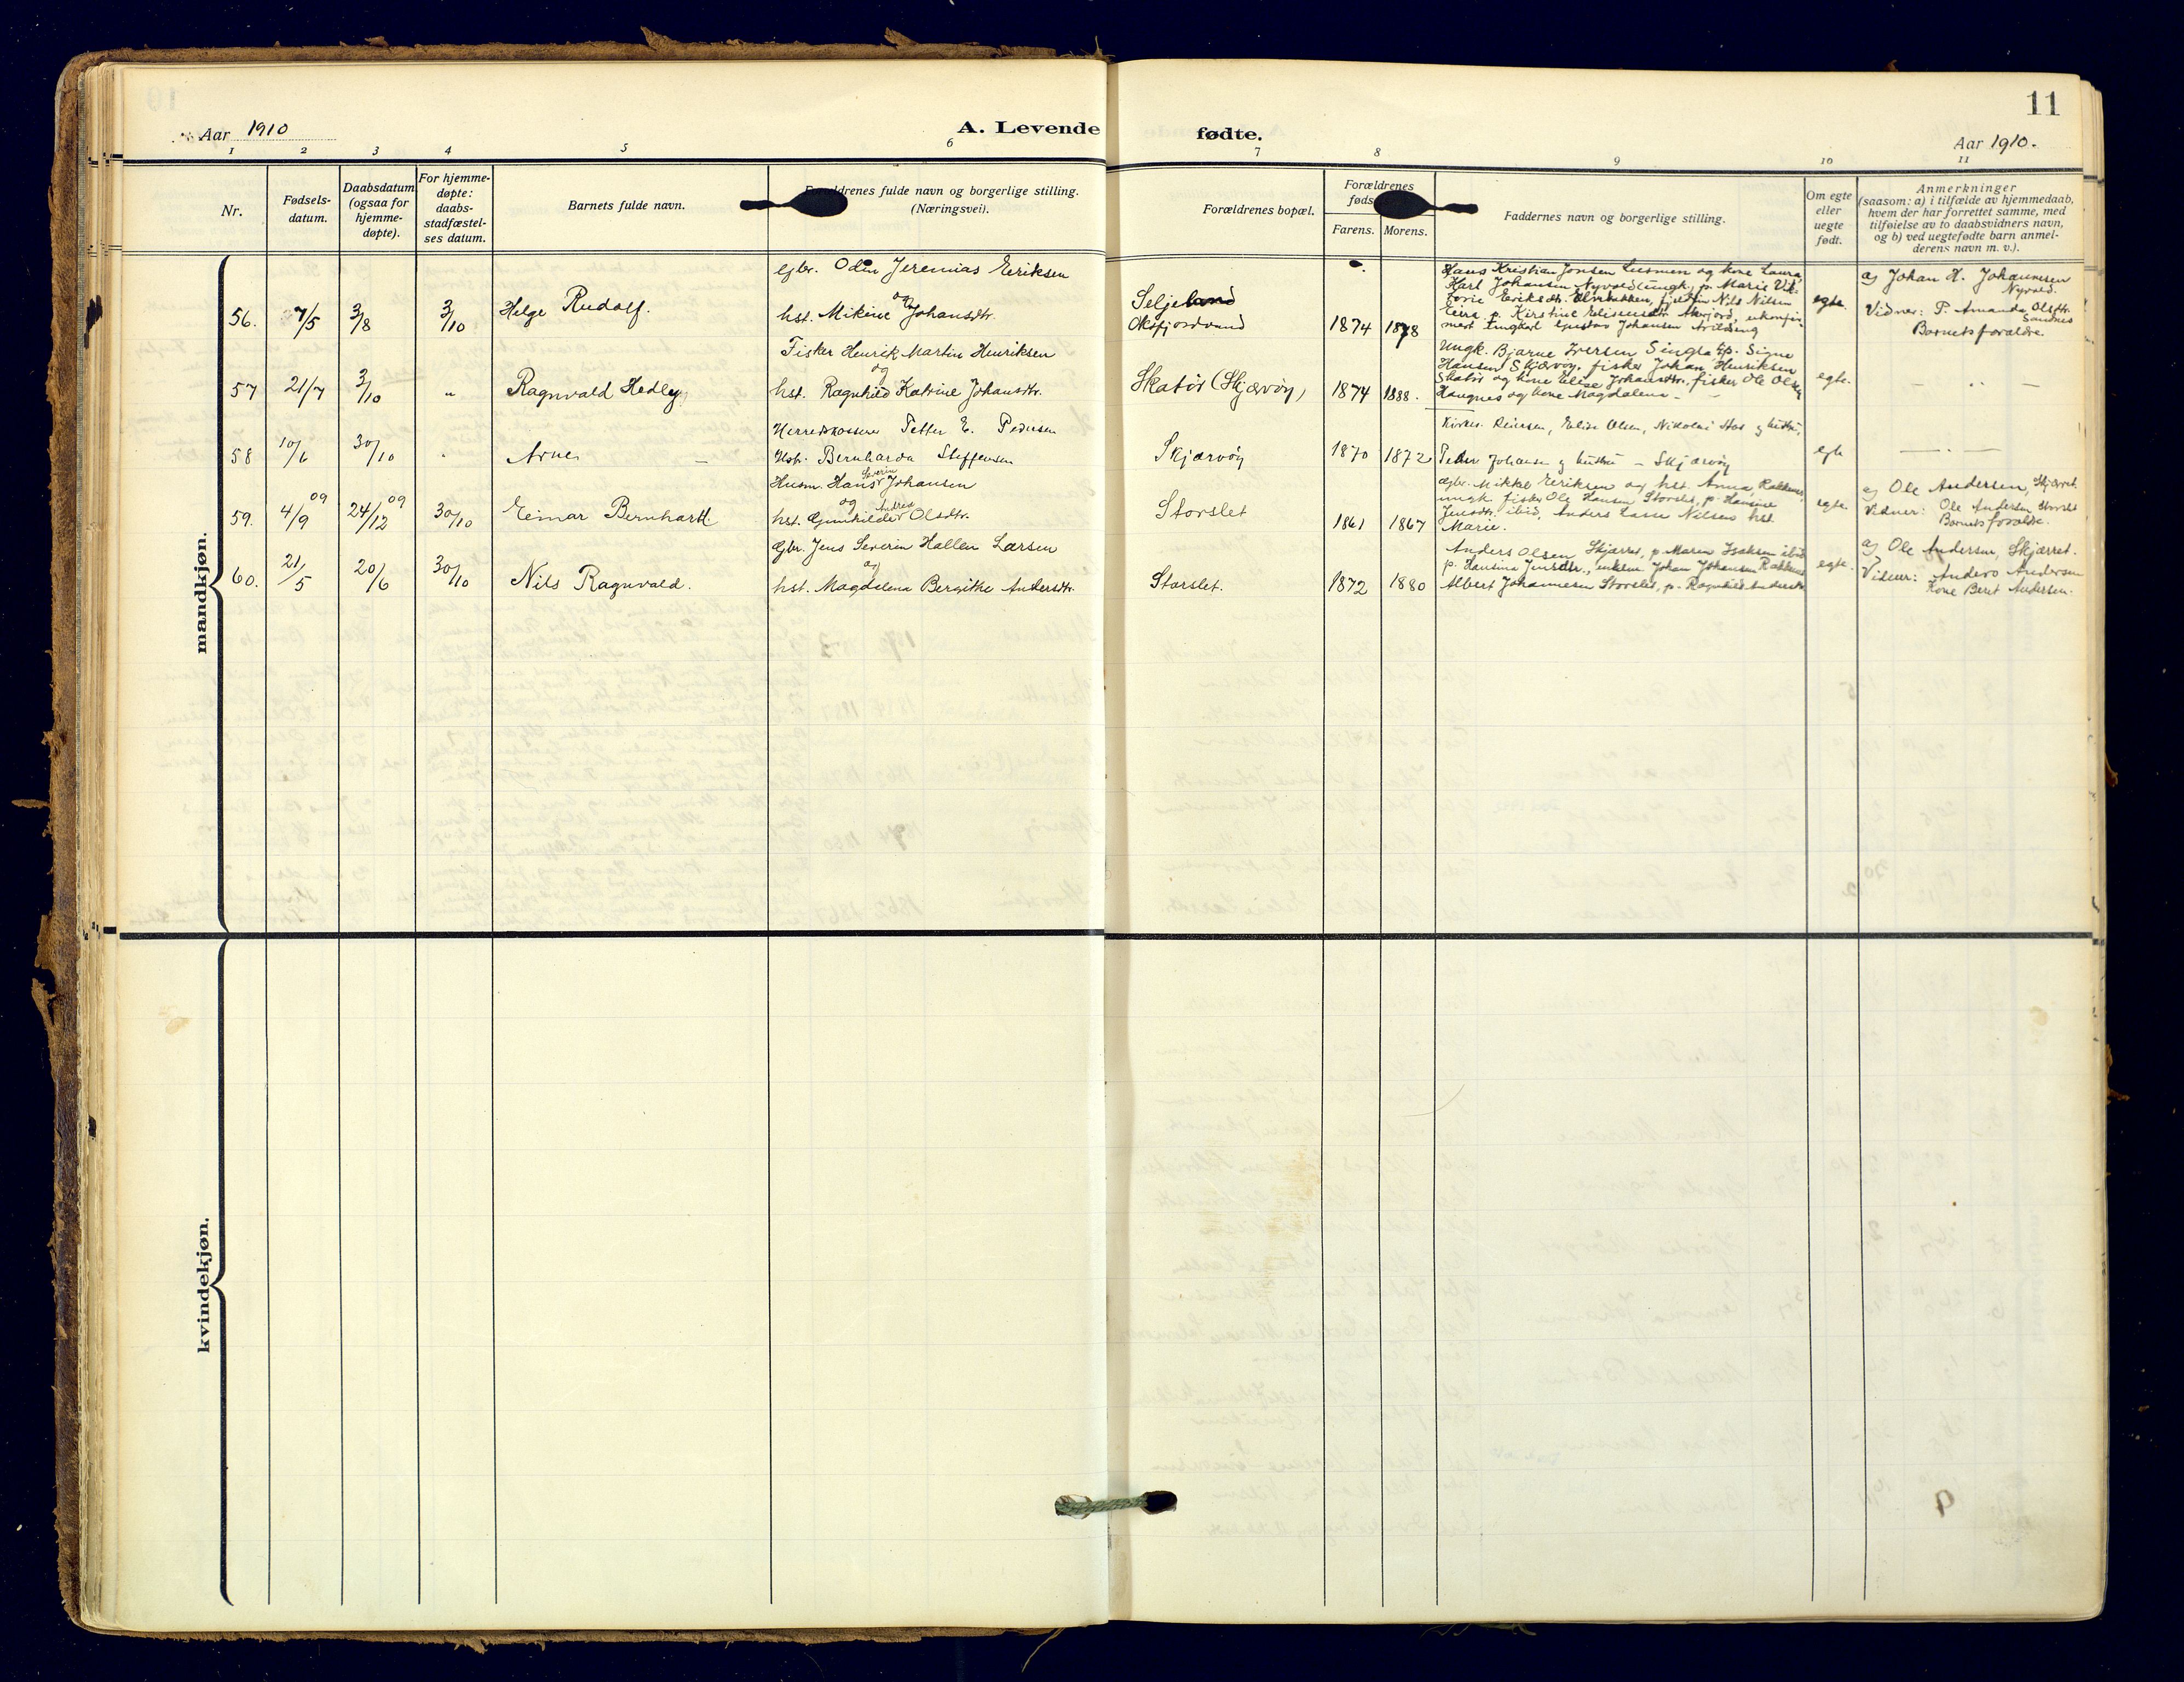 11
Aar 1910
A. Levende fødte.
Aar 1910.
1 2 3 4 5 6 7 8 9 10 11
Nr.
Fødsels-
datum.
Daabsdatum
(ogsaa for
hjemme-
døpte).
For hjemme-
døpte:
daabs-
stadfæstel-
ses datum.
Barnets fulde navn.
Forældrenes fulde navn og borgerlige stilling.
(Næringsvei).
Forældrenes bopæl.
Forældrenes
føds
Farens. Morens.
Faddernes navn og borgerlige stilling.
Om egte
eller
uegte
født.
Anmerkninger
(saasom: a) i tilfælde av hjemmedaab,
hvem der har forrettet samme, med
tilføielse av to daabsvidners navn,
og b) ved uegtefødte barn anmel-
derens navn m. v.).
mandkjøn.
56. 7/5 3/8 3/10 Helge Rudolf.
gbr. Odin Jeremias Eriksen
og
hst. Mikine Johansdtr.
Seljeland
Oksfjordvand
1874 1878
Hans Kristian Jonsen Lusmen og kone Laura,
Karl Johansen Nyvold ungk., p. Marie Vik-
torie Eriksdtr. fjeldfin Nils Nilsen
p. Kirstine Elisensdtr.
Gustav Johansen
egte.
a) Johan H. Johannesen
Nyvold.
Vidner: P. Amanda Olsdtr.
Sandnes
Barnets forældre.
57 21/7 3/10 " Ragnvald Hedley
Fisker Henrik Martin Henriksen
og
hst. Ragnhild Katrine Johansdtr.
Skatør (Skjærvøy)
1874 1888.
Ungk. Bjarne Iversen Singla, p. Signe
Hansen Skjærvøy, fisker Johan Henriksen
Skatør og kone Elise Johansdtr., fisker Ole Olsen
Haugnes og kone Magdalena
egte.
58 10/6 30/10 " Arne
Herredskasserer Petter E. Pedersen
Hstr. Bernharda Steffensen
Skjærvøy
1870 1872
Kirkes. Reiersen, Elise Olsen, Nikolai Hos og hustru,
Peder Johansen og hustru – Skjærvøy
egte
59. 4/9 09 24/12 09 30/10 Einar Bernhart.
Husm. Hans Severin Johansen
og
hst. Gunhilde Andrea Olsdtr.
Storslet
1861 1867
gbr. Mikkel Eriksen og hst. Anna, Rakkenes,
ungk. fisker Ole Hansen Storslet, p. Hansine
Jensdtr. ibid, Anders Lasse Nilsens hst.
Marie.
egte.
a) Ole Andersen, Skjærret.
Vidner: Ole Andersen Storslet
Barnets forældre.
60. 21/5 20/6 30/10 Nils Ragnvald.
Gbr. Jens Severin Hallen Larsen
og
hst. Magdalena Bergitke Andersdtr.
Storslet.
1872 1880
Anders Olsen Skjærret, p. Maren Isaksen ibid
p. Hansina Jensdtr., enkem. Johan Johansen Rakkenes
Albert Johannesen Storslet, p. Ragnhild Andersdtr.
egte.
a) Ole Andersen, Skjærret.
Vidner: Anders Andersen
Kone Beret Andersen.
kvindekjøn.